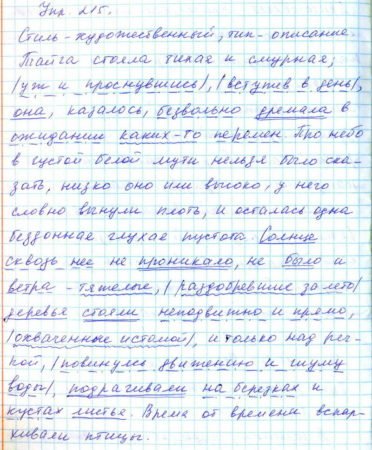 Упр. 215.
Стиль - художественный, тип - описание.
Тайга стояла тихая и смурная;
/уж и проснувшись/, /вступив в день/,
она, казалось, безвольно дремала в
ожидании каких-то перемен. Про небо
в густой белой мути нельзя было ска-
зать, низко оно или высоко, у него
словно вынули плоть, и осталась одна
бездонная глухая пустота. Солнце
сквозь нее не проникало, не было и
ветра - тяжелые, /раздобревшие за лето/
деревья стояли неподвижно и прямо,
/охваченные истомой/, и только над реч-
кой, /повинуясь движению и шуму
воды/, подрагивали на березках и
кустах листья. Время от времени вспар-
хивали птицы.